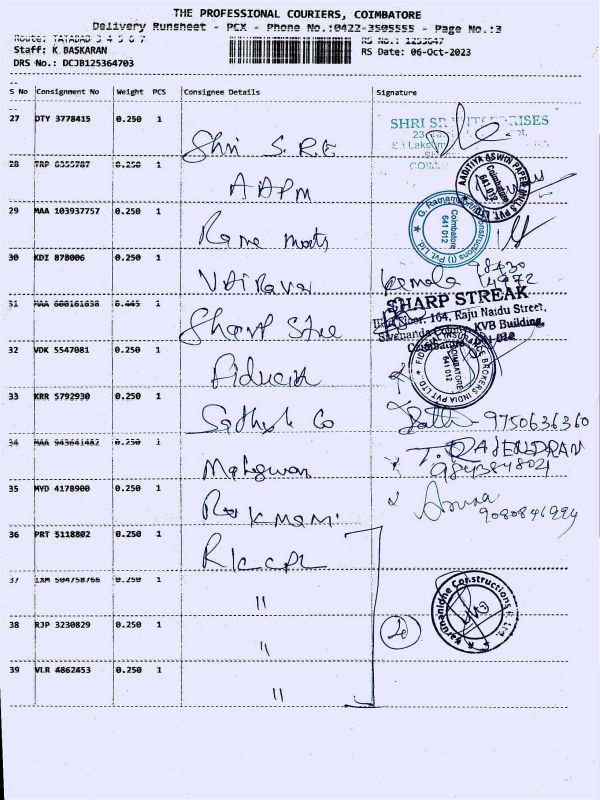 THE PROFESSIONAL COURIERS, COIMBATORE
Delivery Runsheet - PCX - Phone No.:0422-3505555 - Page No.:3
Route: TATABAD 3 4 5 6 7
RS No.: 1253647
Staff: K BASKARAN
RS Date: 06-Oct-2023
DRS No.: DCJB125364703
S No Consignment No Weight PCS Consignee Details Signature
27 DTY 3778415 0.250 1
Shri S.R.E
SHRI SR ENTERPRISES
28 TRP 6355787 0.250 1
AAPM
AADITIYA ASWIN PAPER MILLS PVT LTD
Coimbatore
641 012
29 MAA 103937757 0.250 1
Rama
G. Ramamoorthy Constructions (I) Pvt. Ltd
Coimbatore
641 012
30 KDI 878006 0.250 1
Kemala 98430
14972
31 MAA 680161638 0.445 1
Sharp Stre
SHARP STREAK
IIIrd Floor, 164, Raju Naidu Street,
Sivananda Colony, KVB Building,
Coimbatore 641 012
32 VDK 5547081 0.250 1
Fiducia
FIDUCIAL INSURANCE BROKERS INDIA PVT LTD
COIMBATORE
641 012
33 KRR 5792930 0.250 1
Sathesh Co
9750636360
34 MAA 943641482 0.250 1
Maheswari
T. RAJENDRAN
9843848021
35 MYD 4178900 0.250 1
Rukmani
Aruna
9080846994
36 PRT 5118802 0.250 1
RKCCPL
37 IXM 504758766 0.250 1
"
Karthanidhe Constructions
38 RJP 3230829 0.250 1
"
39 VLR 4862453 0.250 1
"